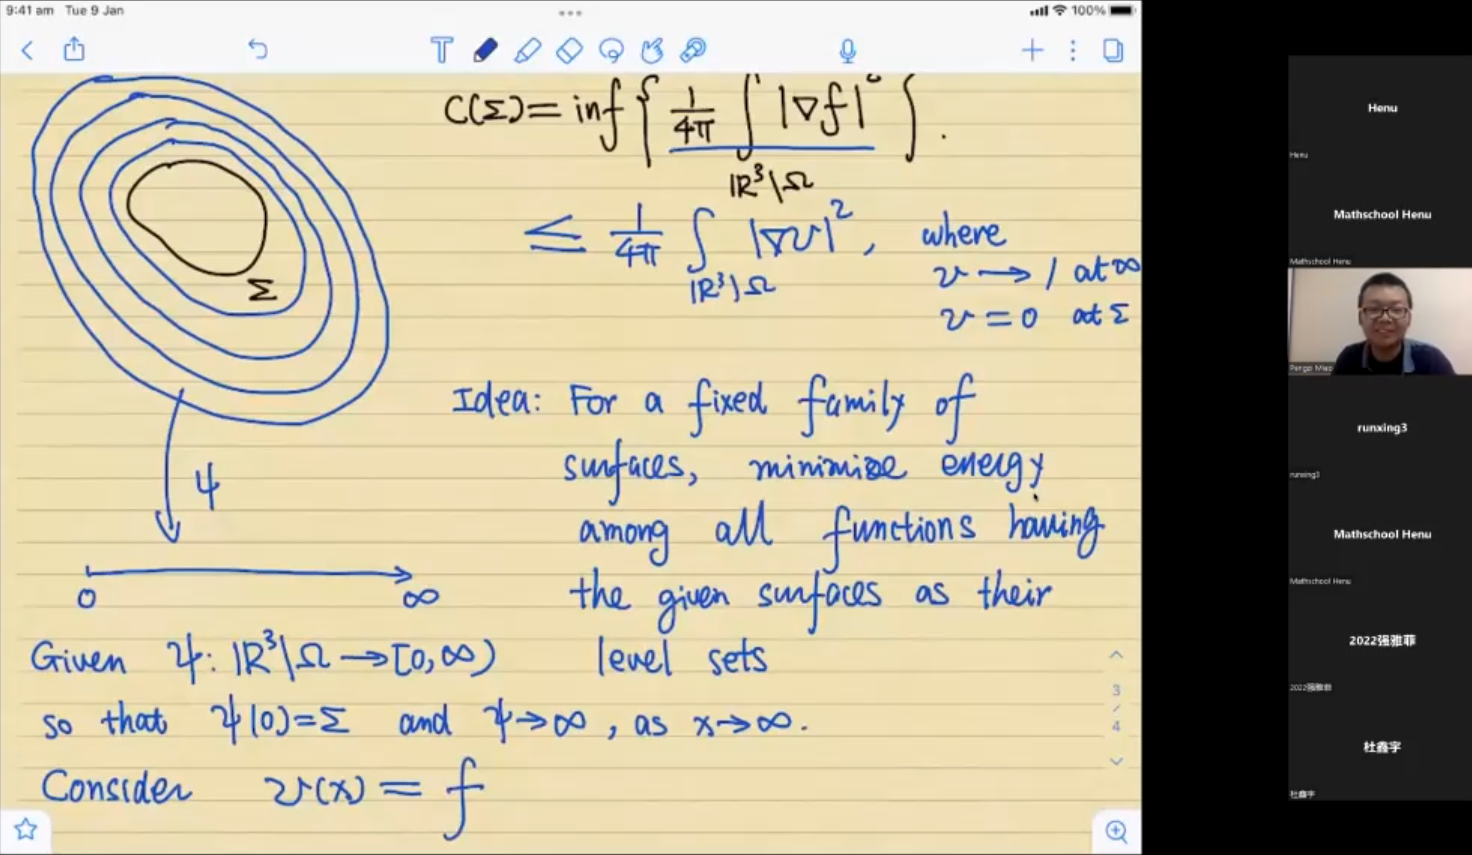 9:41 am Tue 9 Jan
100%
C(Σ) = inf { 1/4π ∫_{ℝ³\Ω} |∇f|² } .
≤ 1/4π ∫_{ℝ³\Ω} |∇v|² , where
v → 1 at ∞
v = 0 at Σ
Σ
Idea: For a fixed family of
surfaces, minimize energy
among all functions having
the given surfaces as their
level sets
ψ
0 ∞
Given ψ: ℝ³\Ω → [0,∞)
so that ψ(0)=Σ and ψ→∞, as x→∞.
Consider v(x) = f
3
/
4
Henu
Henu
Mathschool Henu
Mathschool Henu
Pengzi Miao
runxing3
runxing3
Mathschool Henu
Mathschool Henu
2022强雅菲
2022强雅菲
杜鑫宇
杜鑫宇